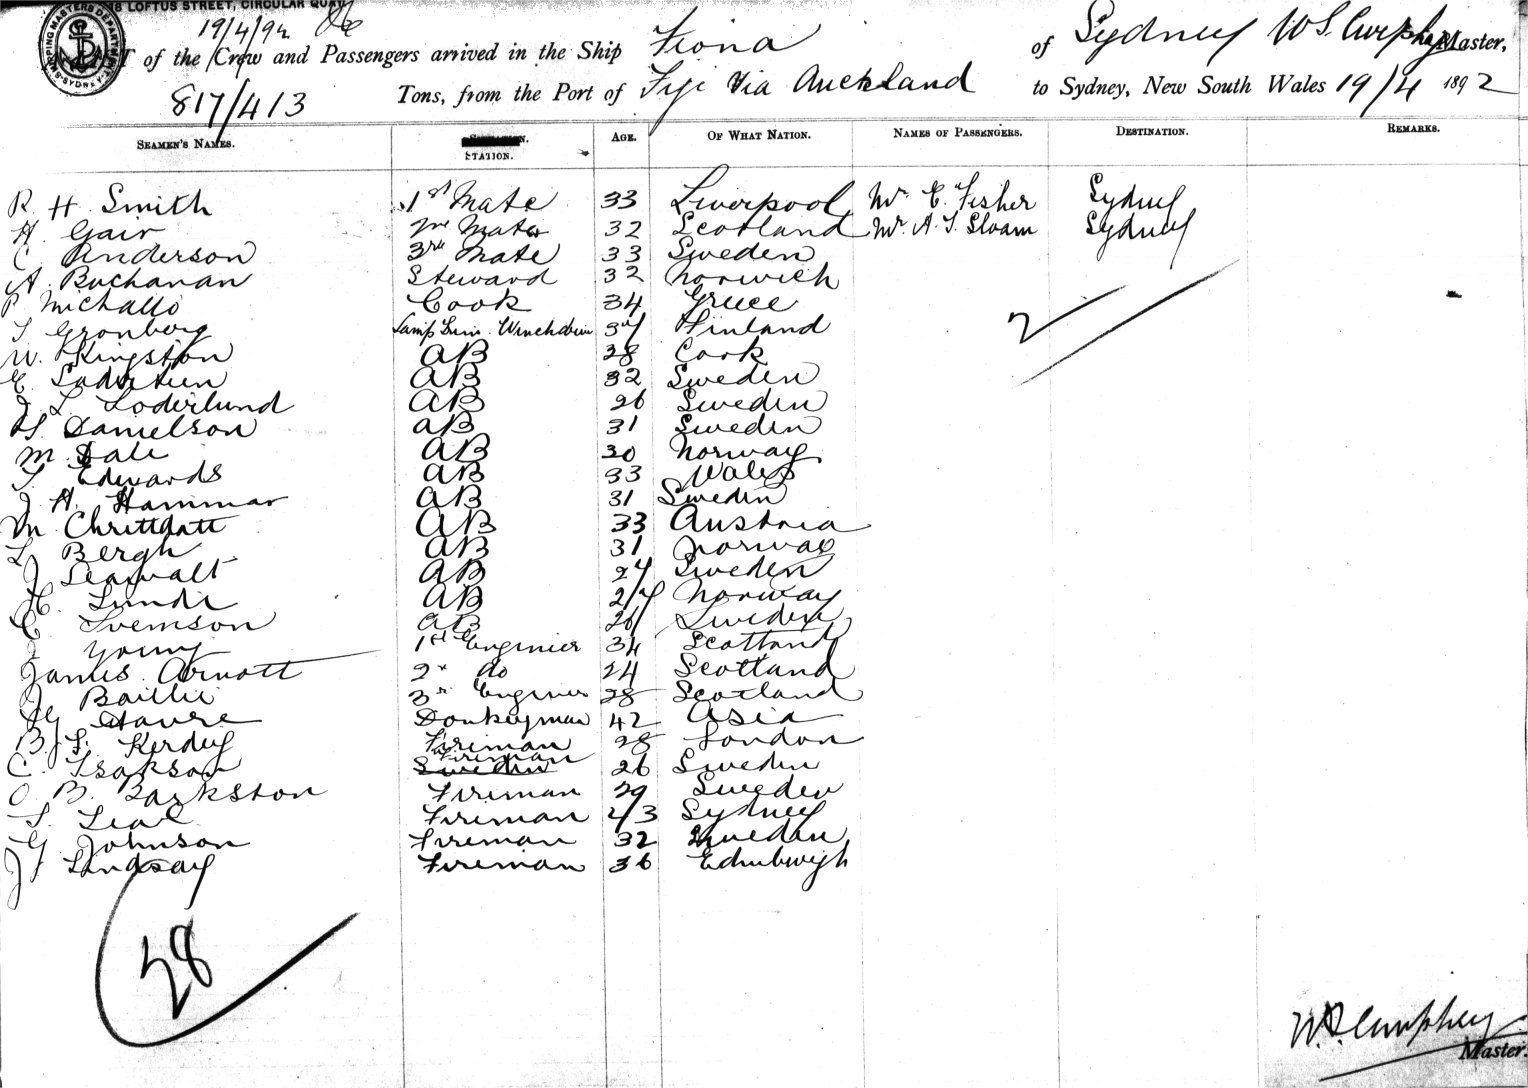 18 LOFTUS STREET, CIRCULAR QUAY
SHIPPING MASTERS DEPARTMENT SYDNEY
19/4/92
LIST of the Crew and Passengers arrived in the Ship Fiona of Sydney W S Curphey Master,
817/413 Tons, from the Port of Fiji Via Auckland to Sydney, New South Wales 19/4 1892
SEAMEN'S NAMES. STATION. AGE. OF WHAT NATION. NAMES OF PASSENGERS. DESTINATION. REMARKS.
R H Smith 1st Mate 33 Liverpool Mr E. Fisher Sydney
H. Gair 2nd Mate 32 Scotland Mr A. J. Sloam Sydney
C Anderson 3rd Mate 33 Sweden
A Buchanan Steward 32 Norwich
P Michallo Cook 34 Greece
Gronberg Lamp Trim. Winchdriv 34 Finland
W. Kingston AB 28 Cork
E AB 32 Sweden
J L Soderlund AB 26 Sweden
H. Danielson AB 31 Sweden
M Dale AB 30 Norway
T Edwards AB 33 Wales
J A. Hammar AB 31 Sweden
M AB 33 Austria
L Bergh AB 31 Norway
J AB 24 Sweden
H. Lunde AB 24 Norway
C Svenson AB 26 Sweden
J Young 1st Engineer 34 Scotland
James Arnott 2nd do 24 Scotland
J Baillie 3rd Engineer 28 Scotland
Donkeyman 42 Asia
B. J. Kerdey Fireman 28 London
C. Isakson Sweden Fireman 26 Sweden
O B. Backston Fireman 29 Sweden
S. Leal Fireman 23 Sydney
G Johnson Fireman 32 Sweden
J Lindsay Fireman 36 Edinburgh
2
28
W. S. Curphey
Master.